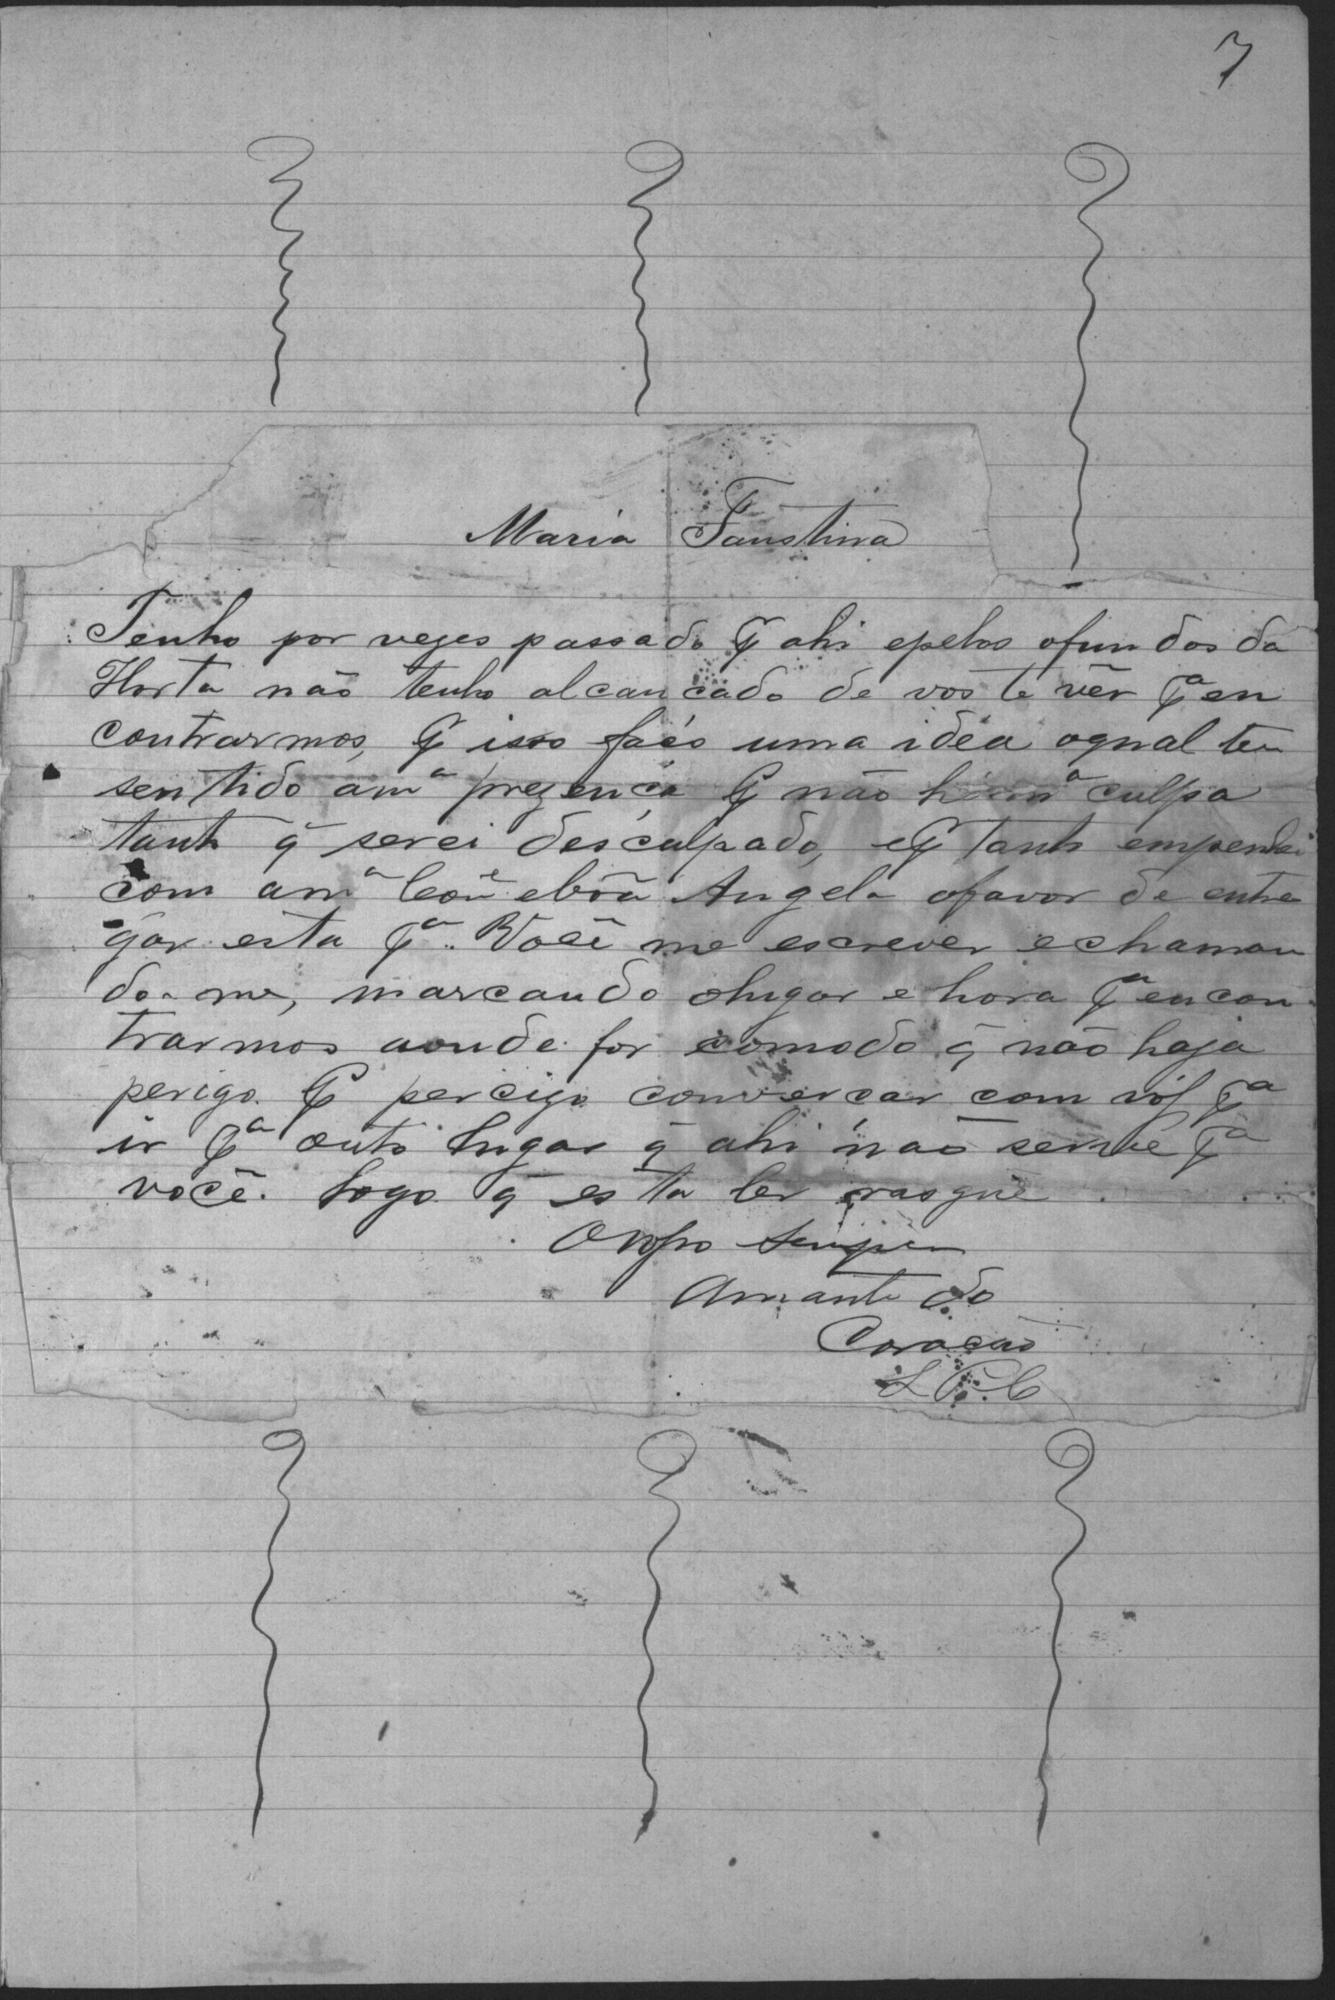 7
Maria Faustina
Tenho por vezes passado P ahi epelos ofundos da
Horta não tenho alcancado de vos te vêr Pª en
contrarmos, P isso faço uma idéa oqual tem
sentido amª prezença P não há mª culpa
tanto q̃ serei desculpado, e P tanto empenhei
com amª bôa Angela ofavor de entre
gar esta Pª Você me escrever echaman
do-me, marcando olugar e hora Pª encon
trarmos aonde for comodo q̃ não haja
perigo. P percigo convercar com vós Pª
ir Pª outo lugar q̃ ahi não serve Pª
você. Logo q̃ esta ler rasgue
O vosso sempre
Amante do
Coração
L P C